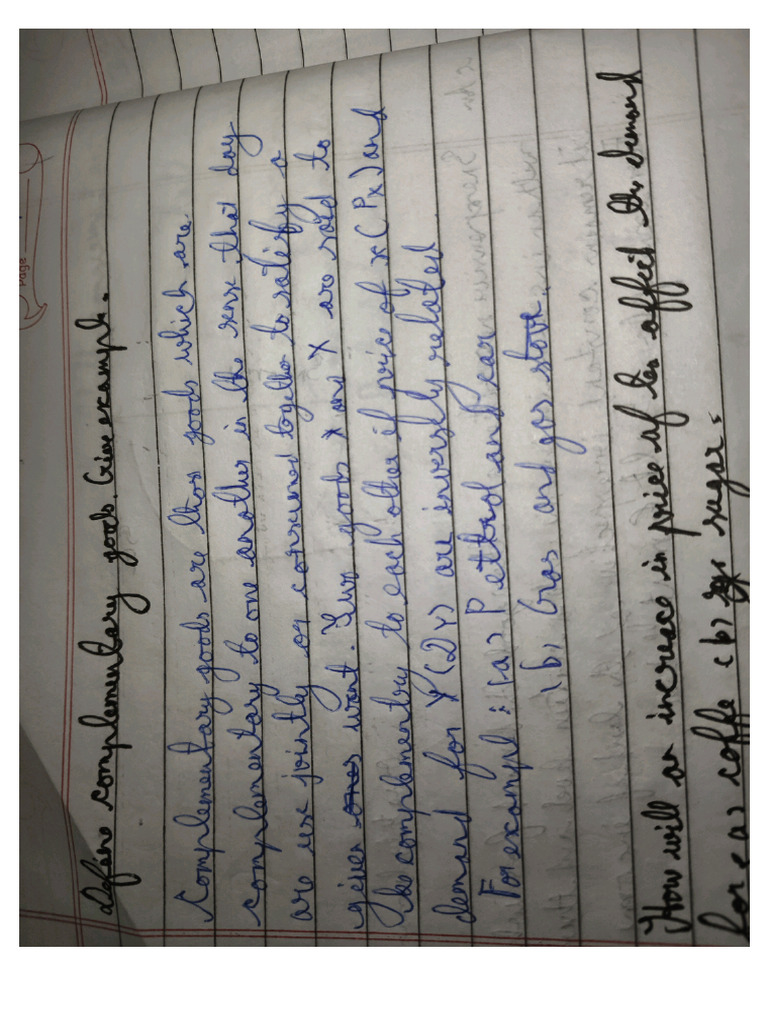 Page
Define complementary goods. Give example.
Complementary goods are thos goods which are
complementary to one another in the sens that day
are use jointly or consumed together to satisfy a
given ones want. Two goods x and Y are said to
be complementry to each other if price of x (Px) and
demand for Y (Dy) are inversly related
For exampl : (a) Pethrol and car
(b) Gas and gas stove
How will an increase in price of tea affect the demand
for (a) coffe (b) sugar.